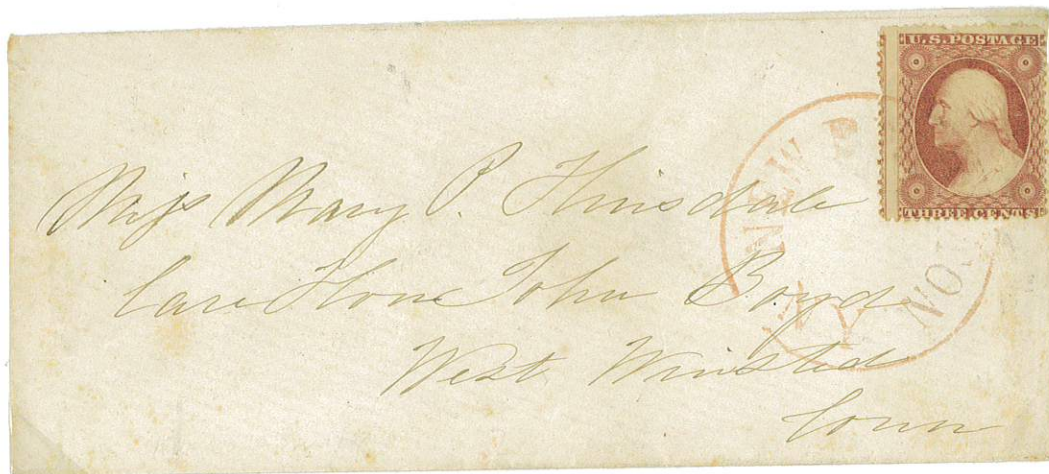 U.S. POSTAGE
THREE CENTS
NEW
Miss Mary P. Hinsdale
Care Hon John Boyd
West Winsted
Conn